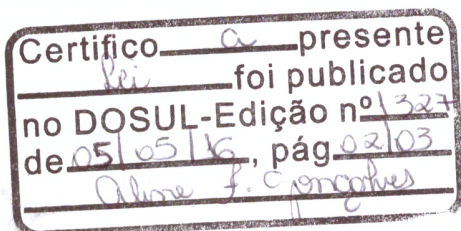 Certifico a presente
Lei foi publicado
no DOSUL-Edição nº 1327
de 05/05/16, pág 02/03
Aline F. Gonçalves